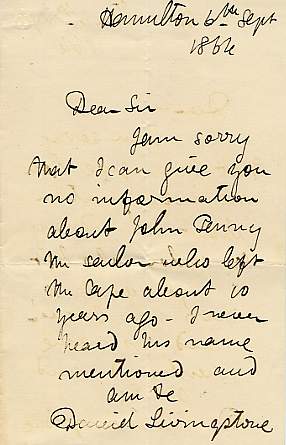 Hamilton 6th Sept
1864
Dear Sir
I am sorry
that I can give you
no information
about John Penny
the sailor who left
the Cape about 10
years ago - I never
heard his name
mentioned and
am &c
David Livingstone